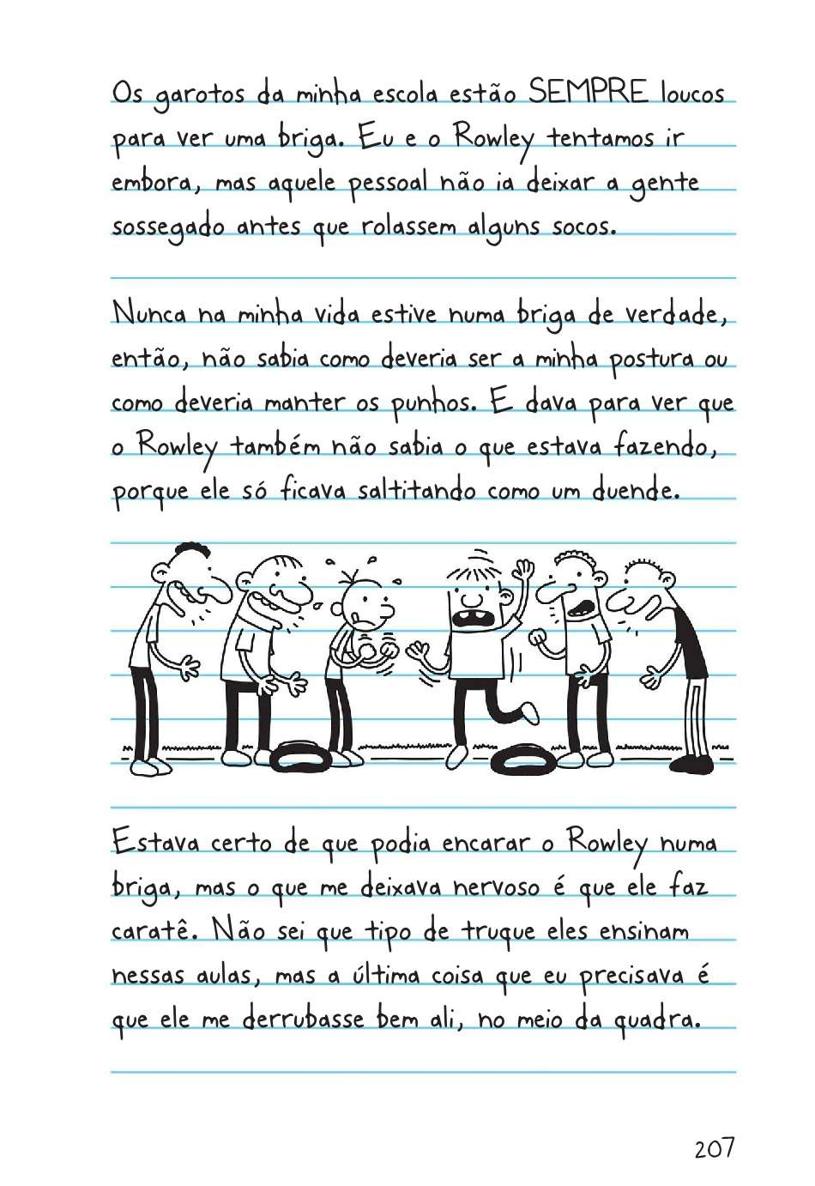 Os garotos da minha escola estão SEMPRE loucos
para ver uma briga. Eu e o Rowley tentamos ir
embora, mas aquele pessoal não ia deixar a gente
sossegado antes que rolassem alguns socos.
Nunca na minha vida estive numa briga de verdade,
então, não sabia como deveria ser a minha postura ou
como deveria manter os punhos. E dava para ver que
o Rowley também não sabia o que estava fazendo,
porque ele só ficava saltitando como um duende.
Estava certo de que podia encarar o Rowley numa
briga, mas o que me deixava nervoso é que ele faz
caratê. Não sei que tipo de truque eles ensinam
nessas aulas, mas a última coisa que eu precisava é
que ele me derrubasse bem ali, no meio da quadra.
207